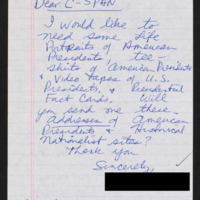 Dear C-SPAN
I would like to
need some Life
Portraits of American
Presidents tee-
shirts of America Presidents
& Video tapes of U.S.
Presidents, & Presidental
Fact Cards, Will
you send one these
Addresses of American
Presidents & Historical
Nationalist sites?
Thank you
Sincerely,